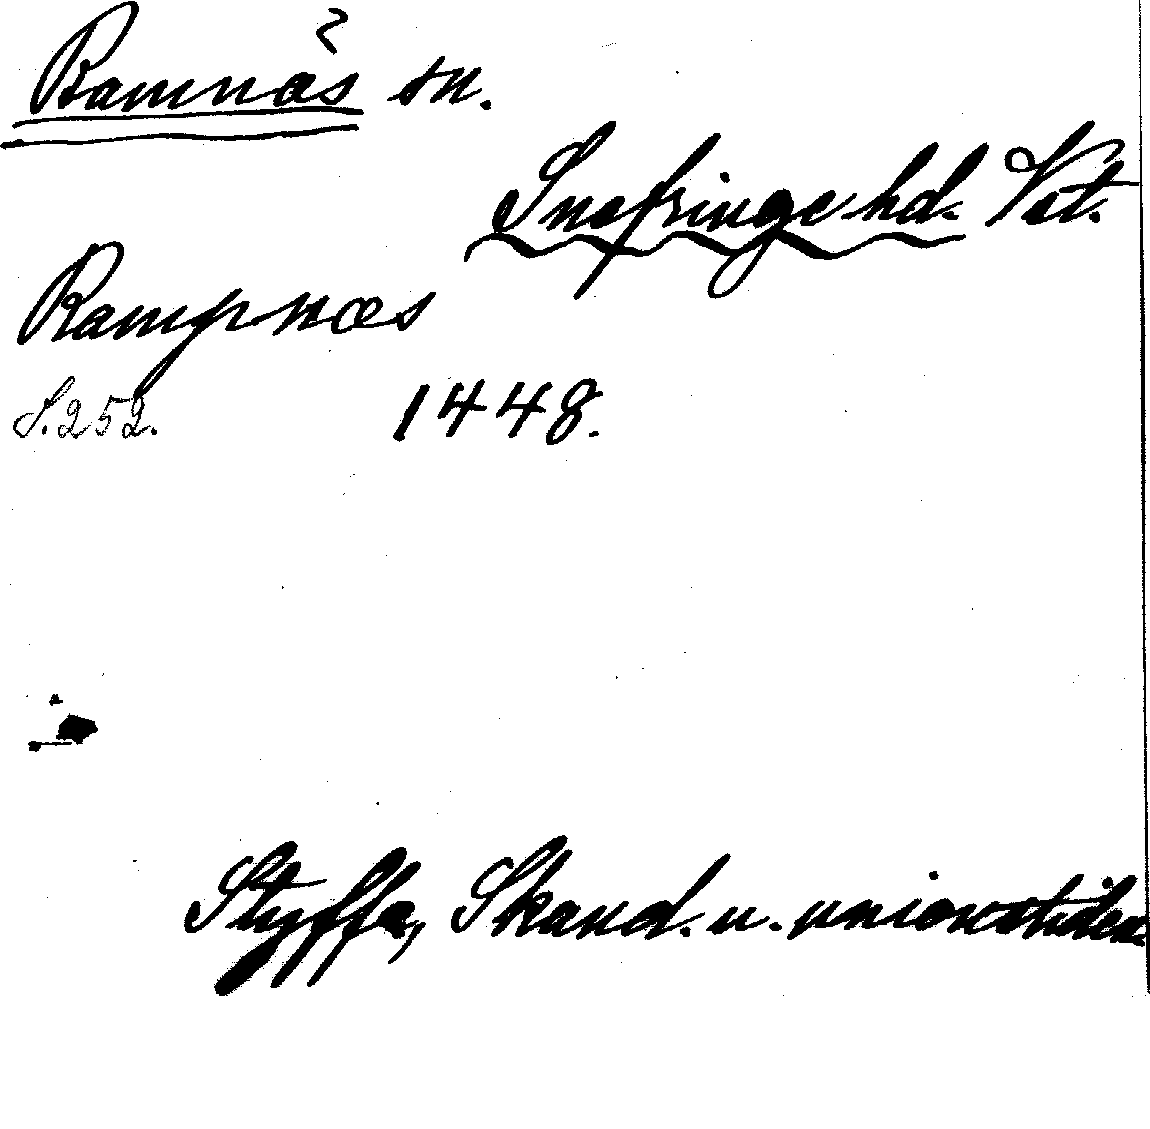 Ramnäs sn.
Snefringe hd. Vst.
Rampnæs
S. 252. 1448.
Styffe, Skand. u. unionstiden.